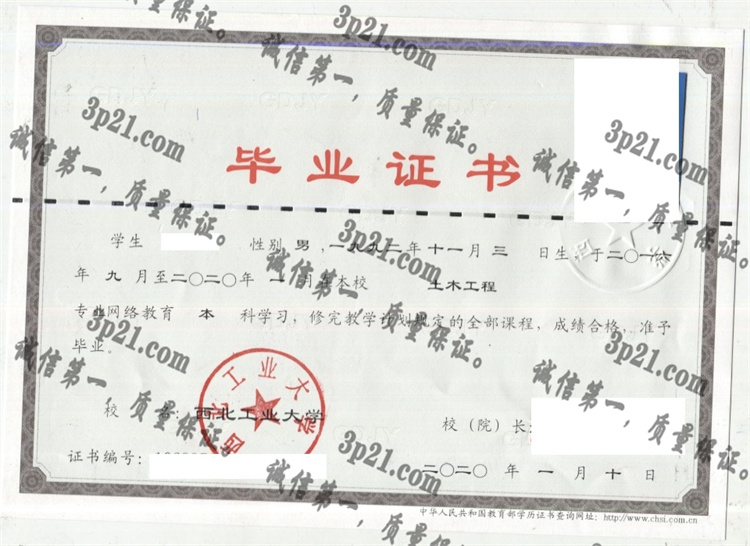 毕业证书
学生 性别 男，一九九二年十一月三 日生，于二〇一六
年 九 月至二〇二〇年 一 月在本校 土木工程
专业网络教育 本 科学习，修完教学计划规定的全部课程，成绩合格，准予
毕业。
西北工业大学
校 名：西北工业大学 校（院）长：
证书编号： 二〇二〇 年 一 月 十 日
中华人民共和国教育部学历证书查询网址：http://www.chsi.com.cn
3p21.com
诚信第一，质量保证。
3p21.com
诚信第一，质量保证。
3p21.com
诚信第一，质量保证。
3p21.com
诚信第一，质量保证。
3p21.com
诚信第一，质量保证。
3p21.com
诚信第一，质量保证。
3p21.com
诚信第一，质量保证。